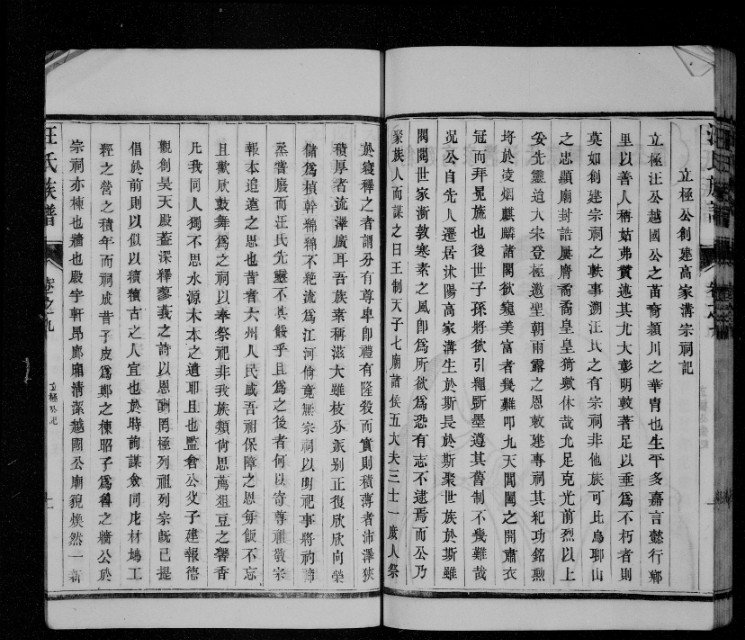 立極公創建高家溝宗祠記
立極汪公越國公之苗裔潁川之華胄也生平多嘉言懿行鄉
里以善人稱姑弗贅述其尤大彰明較著足以垂為不朽者則
莫如創建宗祠之軼事溯汪氏之有宗祠非他族可比烏聊山
之忠顯廟封誥屢膺喬喬皇皇猗歟休哉尤足克光前烈以上
妥先靈迨入宋登極邀聖朝雨露之恩敕建專祠其紀功銘勳
埒於凌烟麒麟諸閣欲窺美富者幾難叩九天閶闔之開肅衣
冠而拜冕旒也後世子孫將欲引繩斲墨遵其舊制不幾難哉
況公自先人遷居沭陽高家溝生於斯長於斯聚世族於斯雖
閥閱世家漸敦寒素之風即為所欲為恐有志不逮焉而公乃
聚族人而謀之曰王制天子七廟諸侯五大夫三士一庶人祭
於寢釋之者謂分有尊卑即禮有隆殺而實則積薄者沛澤狹
積厚者流澤廣耳吾族素稱滋大雖枝分派別正復欣欣向榮
儲為楨幹綿綿不絕流為江河倘竟無宗祠以明祀事將礿禘
烝嘗廢而汪氏先靈不其餒乎且為之後者何以寄尊祖敬宗
報本追遠之思也昔者六州人民咸吾祖保障之恩毎飯不忘
且歡欣鼓舞為之祠以奉祭祀非我族類尚思薦俎豆之馨香
凡我同人獨不思水源木本之遺耶且也監倉公父子建報德
觀創昊天殿蓋深釋蓼莪之詩以恩酬罔極列祖列宗既已提
倡於前則以似以續續古之人宜也於時詢謀僉同庀材鳩工
經之營之積年而祠成昔子皮為鄭之棟昭子為魯之牆公於
宗祠亦棟也牆也殿宇軒昂廊廟清深越國公廟貌煥然一新
汪氏族譜
卷之九
立極公記
十